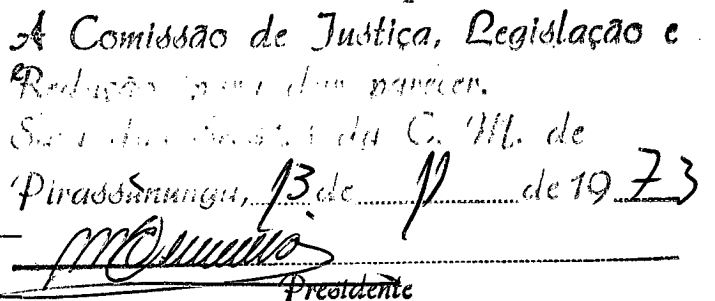 A Comissão de Justiça, Legislação e
Redação para dar parecer.
Sala das Sessões da C. M. de
Pirassununga, 13 de 11 de 1973
Presidente